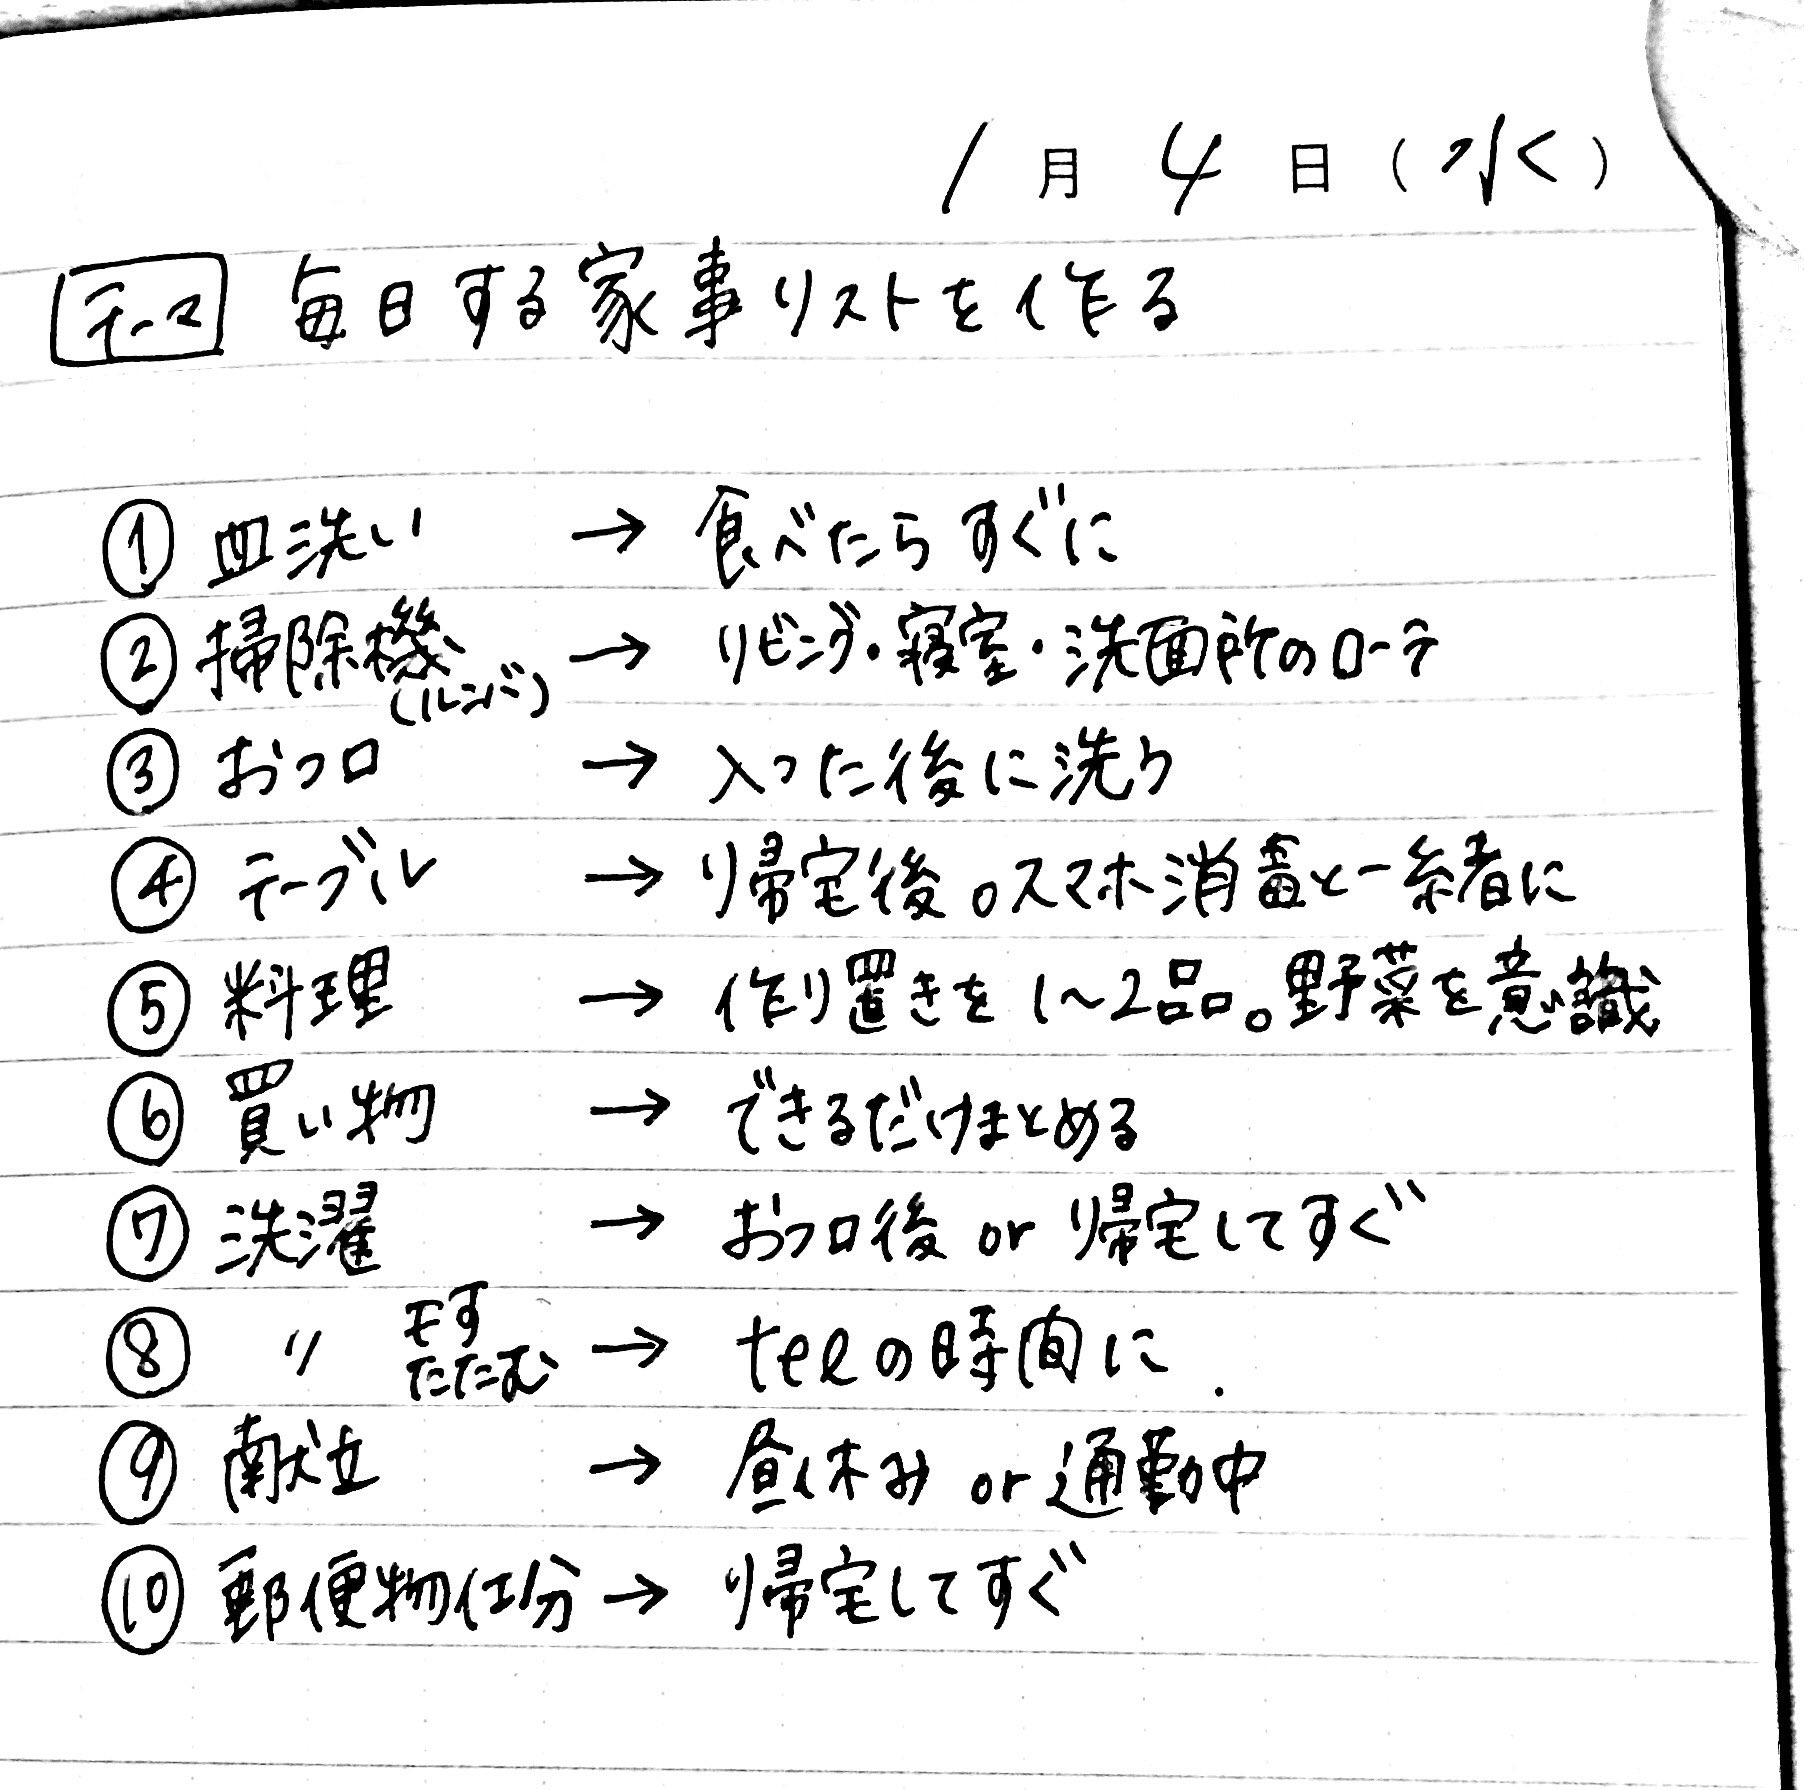 1月4日(水)
テーマ 毎日する家事リストを作る
① 皿洗い → 食べたらすぐに
② 掃除機(ルンバ) → リビング・寝室・洗面所のローテ
③ おフロ → 入った後に洗う
④ テーブル → 帰宅後。スマホ消毒と一緒に
⑤ 料理 → 作り置きを1~2品。野菜を意識
⑥ 買い物 → できるだけまとめる
⑦ 洗濯 → おフロ後 or 帰宅してすぐ
⑧ 〃 干す たたむ → telの時間に.
⑨ 献立 → 昼休み or 通勤中
⑩ 郵便物仕分 → 帰宅してすぐ